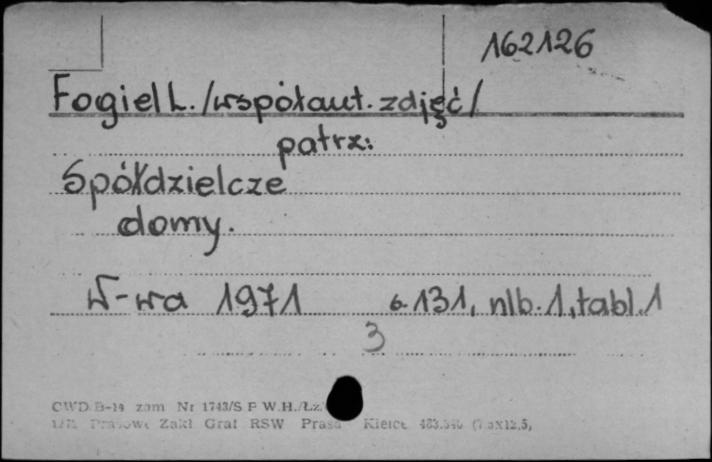 162126
Fogiel L. /współaut. zdjęć/
patrz:
Spółdzielcze
domy.
W-wa 1971 s. 131, nlb. 1, tabl. 1
3
CWD B-14 zam Nr 1743/S P W.H./Łz.
Zakł Graf RSW Prasa Kielce